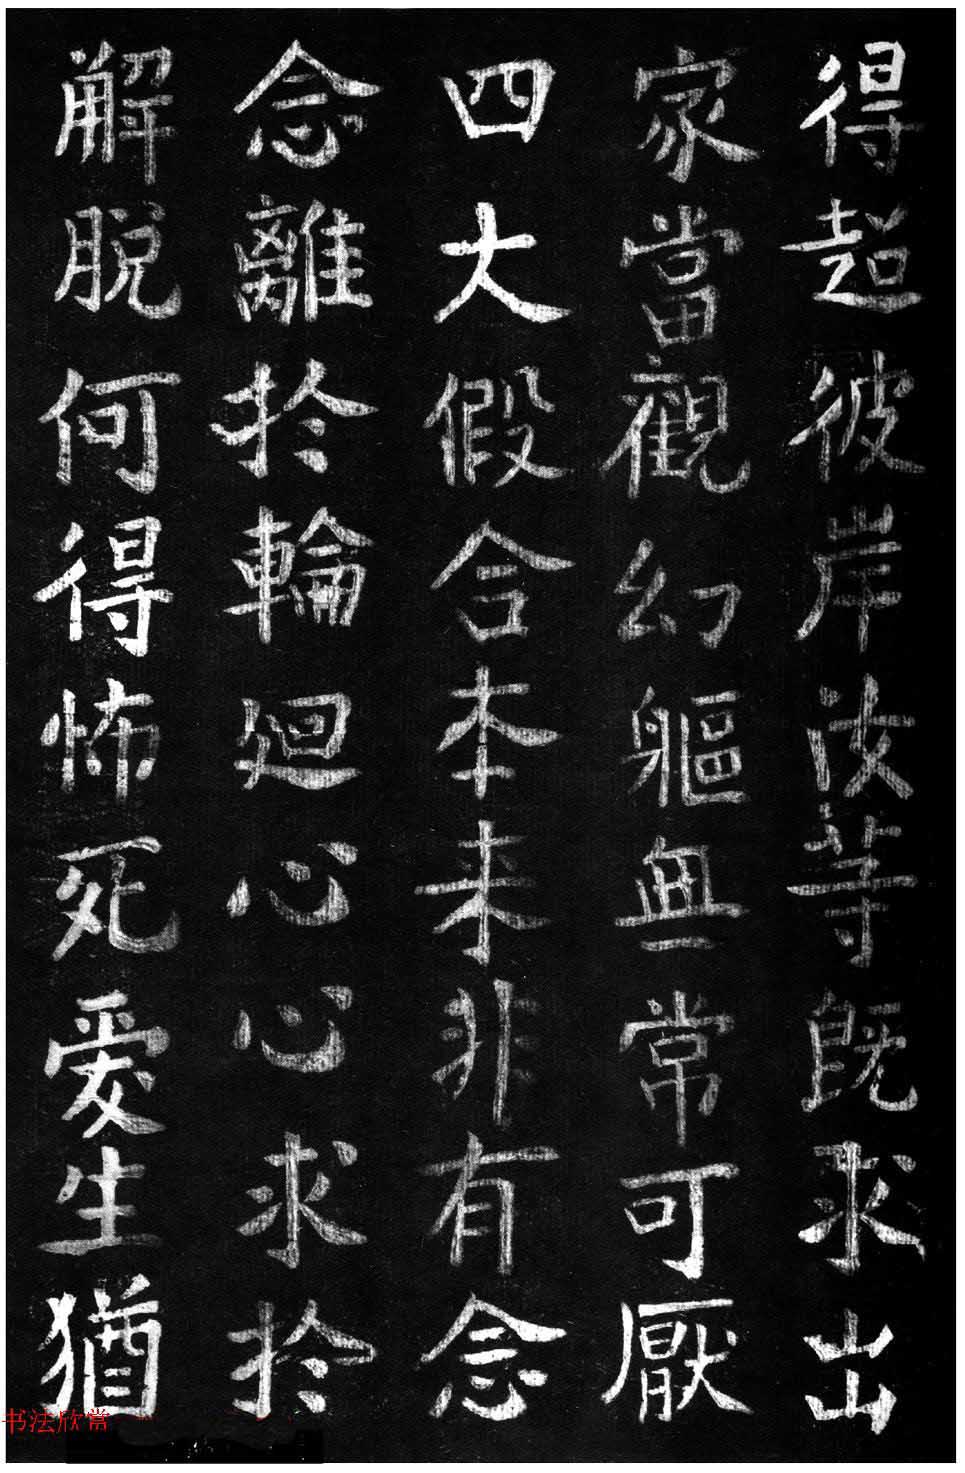 得超彼岸汝等既求出
家當觀幻軀無常可厭
四大假合本来非有念
念離扵輪廻心心求扵
解脫何得怖死愛生猶
书法欣赏